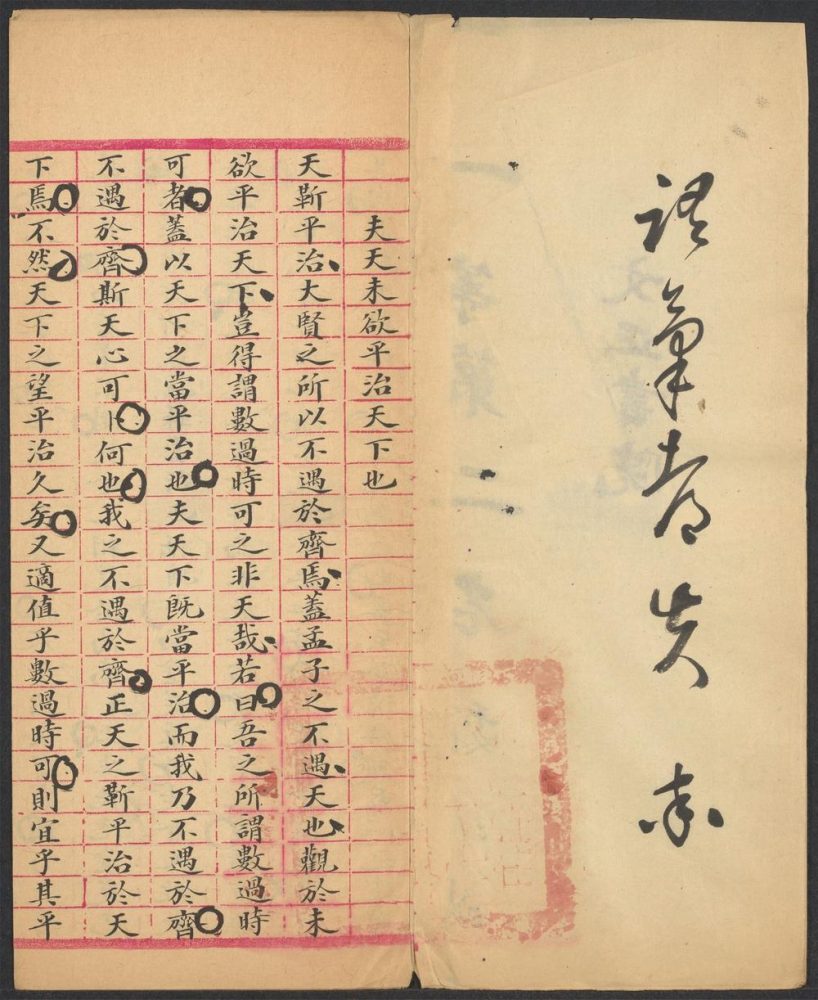 失
夫天未欲平治天下也
天靳平治大賢之所以不遇於齊焉蓋孟子之不遇天也觀於未
欲平治天下豈得謂數過時可之非天哉若曰吾之所謂數過時
可者蓋以天下之當平治也夫天下既當平治而我乃不遇於齊
不遇於齊斯天心可卜何也我之不遇於齊正天之靳平治於天
下焉不然天下之望平治久矣又適值乎數過時可則宜乎其平